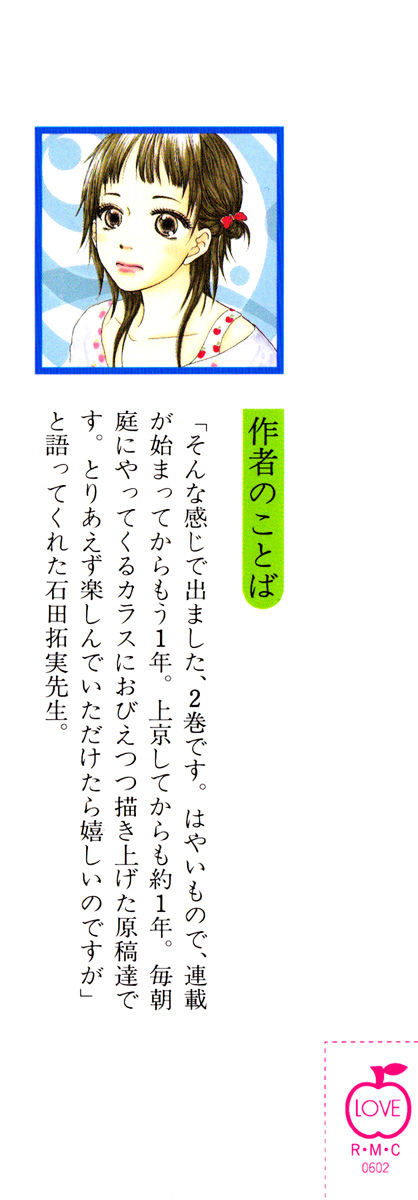 作者のことば
「そんな感じで出ました、2巻です。はやいもので、連載
が始まってからもう1年。上京してからも約1年。毎朝
庭にやってくるカラスにおびえつつ描き上げた原稿達で
す。とりあえず楽しんでいただけたら嬉しいのですが」
と語ってくれた石田拓実先生。
LOVE
R・M・C
0602